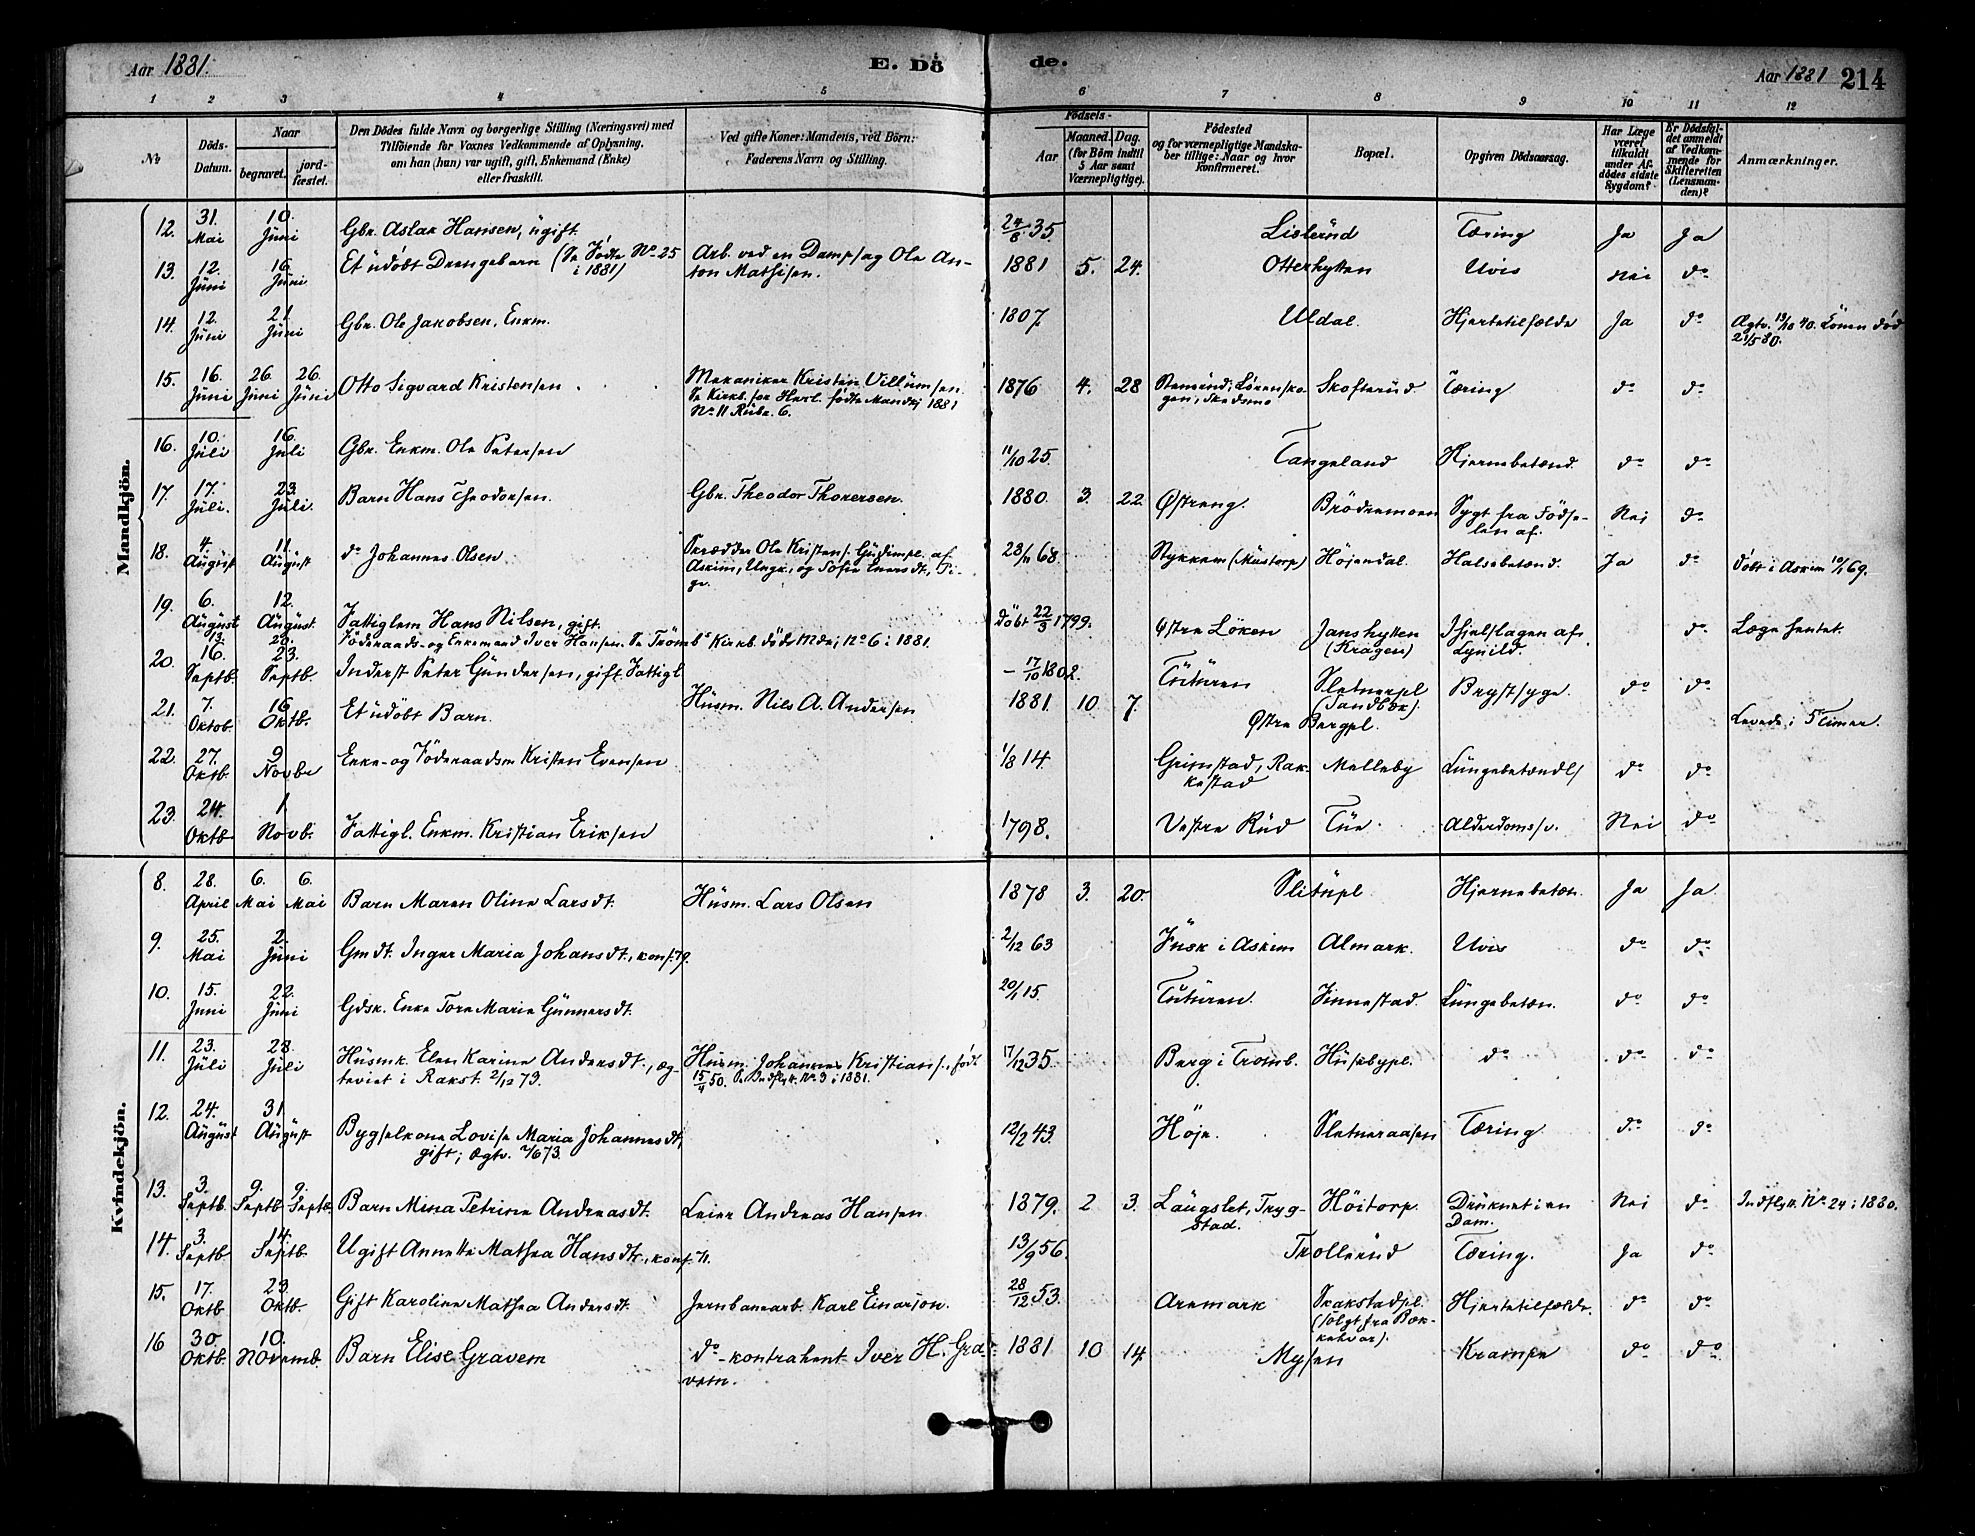 Aar 1881. E. Dö de. Aar 1881 214
1 2 3 4 5 6 7 8 9 10 11 12
No
Döds-Datum.
Naar begravet. jordfæstet.
Den Dödes fulde Navn og borgerlige Stilling (Næringsvei) med
Tilföiende for Voxnes Vedkommende af Oplysning,
om han (hun) var ugift, gift, Enkemand (Enke)
eller fraskilt.
Ved gifte Koner: Mandens, ved Börn:
Faderens Navn og Stilling.
Födsels-
Aar Maaned. Dag.
(for Börn indtil
5 Aar samt
Værnepligtige).
Födested
og for værnepligtige Mandskaber tillige: Naar og hvor
konfirmeret.
Bopæl.
Opgiven Dödsaarsag.
Har Læge
været
tilkaldt
under Afdödes sidste
Sygdom?
Er Dödsfaldet anmeldt
af Vedkommende for
Skifteretten
(Lensmanden)?
Anmærkninger.
Mandkjön.
12. 31. Mai 10 Juni Gbr. Aslak Hansen, ugift. 24/8 35. Lislerud Tæring Ja Ja
13. 12. Juni 16. Juni Et udöbt Drengebarn (Se Födte No 25 i 1881) Arb. ved en Dampsag Ole Anton Mathisen. 1881 5. 24. Otterhytten Uvis Nei do
14. 12. Juni 21 Juni Gbr. Ole Jakobsen, Enkm. 1807 Uldal. Hjertetilfælde Ja do Ægtv. 13/10 40. Konen död 21/5 80.
15. 16. Juni 26. Juni 26. Juni Otto Sigvard Kristensen Mekaniker Kristen Villumsen. Se Kirkb. for Herl. födte Mandkj 1881 No 11 Rubr. 6. 1876 4. 28 Lörenskogen, Skedsmo Skofterud Tæring do do
16. 10. Juli 16. Juli Gbr. Enkm. Ole Petersen 11/10 25. Tangeland Hjernebetænd. do do
17. 17. Juli. 23. Juli. Barn Hans Theodorsen. Gbr. Theodor Thoresen. 1880. 3. 22. Østreng. Brödremoen Sygt fra Födselen af. Nei do
18. 4. August 11. August do Johannes Olsen Skrædder Ole Kristens. Gudimpl. af Askim, Ungk., og Sofie Enersdt., Pige. 23/11 68 Stykkem (Mustorp) Höjendal. Halsebetænd. Ja do Döbt i Askim 10/1 69.
19. 6. August 12. August. Fattiglem Hans Nilsen, gift. Döbt 22/3 1799. Østre Löken Janshytten (Kragen) Ihjelslagen af Lynild. do Læge hentet.
13. 20. Föderaads- og Enkemand Iver Hansen. Se Trömb's Kirkb. döde Mdkj No 6 i 1881.
20. 16. Septb. 23. Septb. Inderst Peter Gundersen, gift. Fattigl — 17/10 1802. Tuturen Sletnerpl (Sandbæk). Brystsyge. do do
21. 7. Oktob. 16 Oktb. Et udöbt Barn. Husm. Nils A. Andersen 1881. 10 7. Østre Bergpl. Levede i 5 Timer.
22. 27. Oktb. 9 Novbr Enke- og Föderaadsm Kristen Evensen 1/8 14. Grimstad, Rakkestad Melleby Lungebetændls do do
23. 24. Oktb. 1 Novb. Fattigl. Enkm. Kristian Eriksen 1798. Vestre Rud Tue. Alderdomssv. Nei do
Kvindekjön.
8. 28. April 6. Mai 6. Mai Barn Maren Oline Larsdt. Husm. Lars Olsen 1878 3. 20. Slitupl Hjernebetæn. Ja Ja
9. 25. Mai 2. Juni Gmdt. Inger Maria Johansdt., konf. 79. 2/12 63 Fusk i Askim Almark. Uvis do do
10. 15. Juni 22. Juni Gdsk. Enke Tore Marie Gunnersdt. 20/1 15. Tuturen. Finnestad. Lungebetæn. do do
11. 23. Juli 28. Juli Husmk. Elen Karine Andersdt., ægteviet i Rakst. 2/12 73. Husm. Johannes Kristians., födt 15/4 50. Se Indflytt. No 3 i 1881. 17/12 35 Berg i Tromb. Husebypl. do do do
12. 24. August 31 August Bygselkone Lovise Maria Johannesdt, gift; Ægtv. 2/6 73. 12/2 43. Höje. Sletneraasen Tæring do do
13. 3. Septb. 9. Septb 9. Septb. Barn Mina Petrine Andreasdt. Leier Andreas Hansen. 1879. 2 3. Laugslet, Trygstad. Höitorp Druknet i en Dam. Nei do Indflytt. No 24 i 1880.
14. 3. Septb. 14. Septb. Ugift Annette Mathea Hansdtr., konf. 71. 13/9 56. Trollerud Tæring. Ja do
15. 17. Oktb. 23. Oktb. Gift Karoline Mathea Andersdt. Jernbanearb. Karl Einarson. 28/12 53. Aremark Skakstadpl. (solgt fra Bækkehvar). Hjertetilfælde. do do
16 30. Oktb. 10. Novemb. Barn Elise Gravem do -kontrahent Iver H. Gravem. 1881 10 14. Mysen Krampe do do